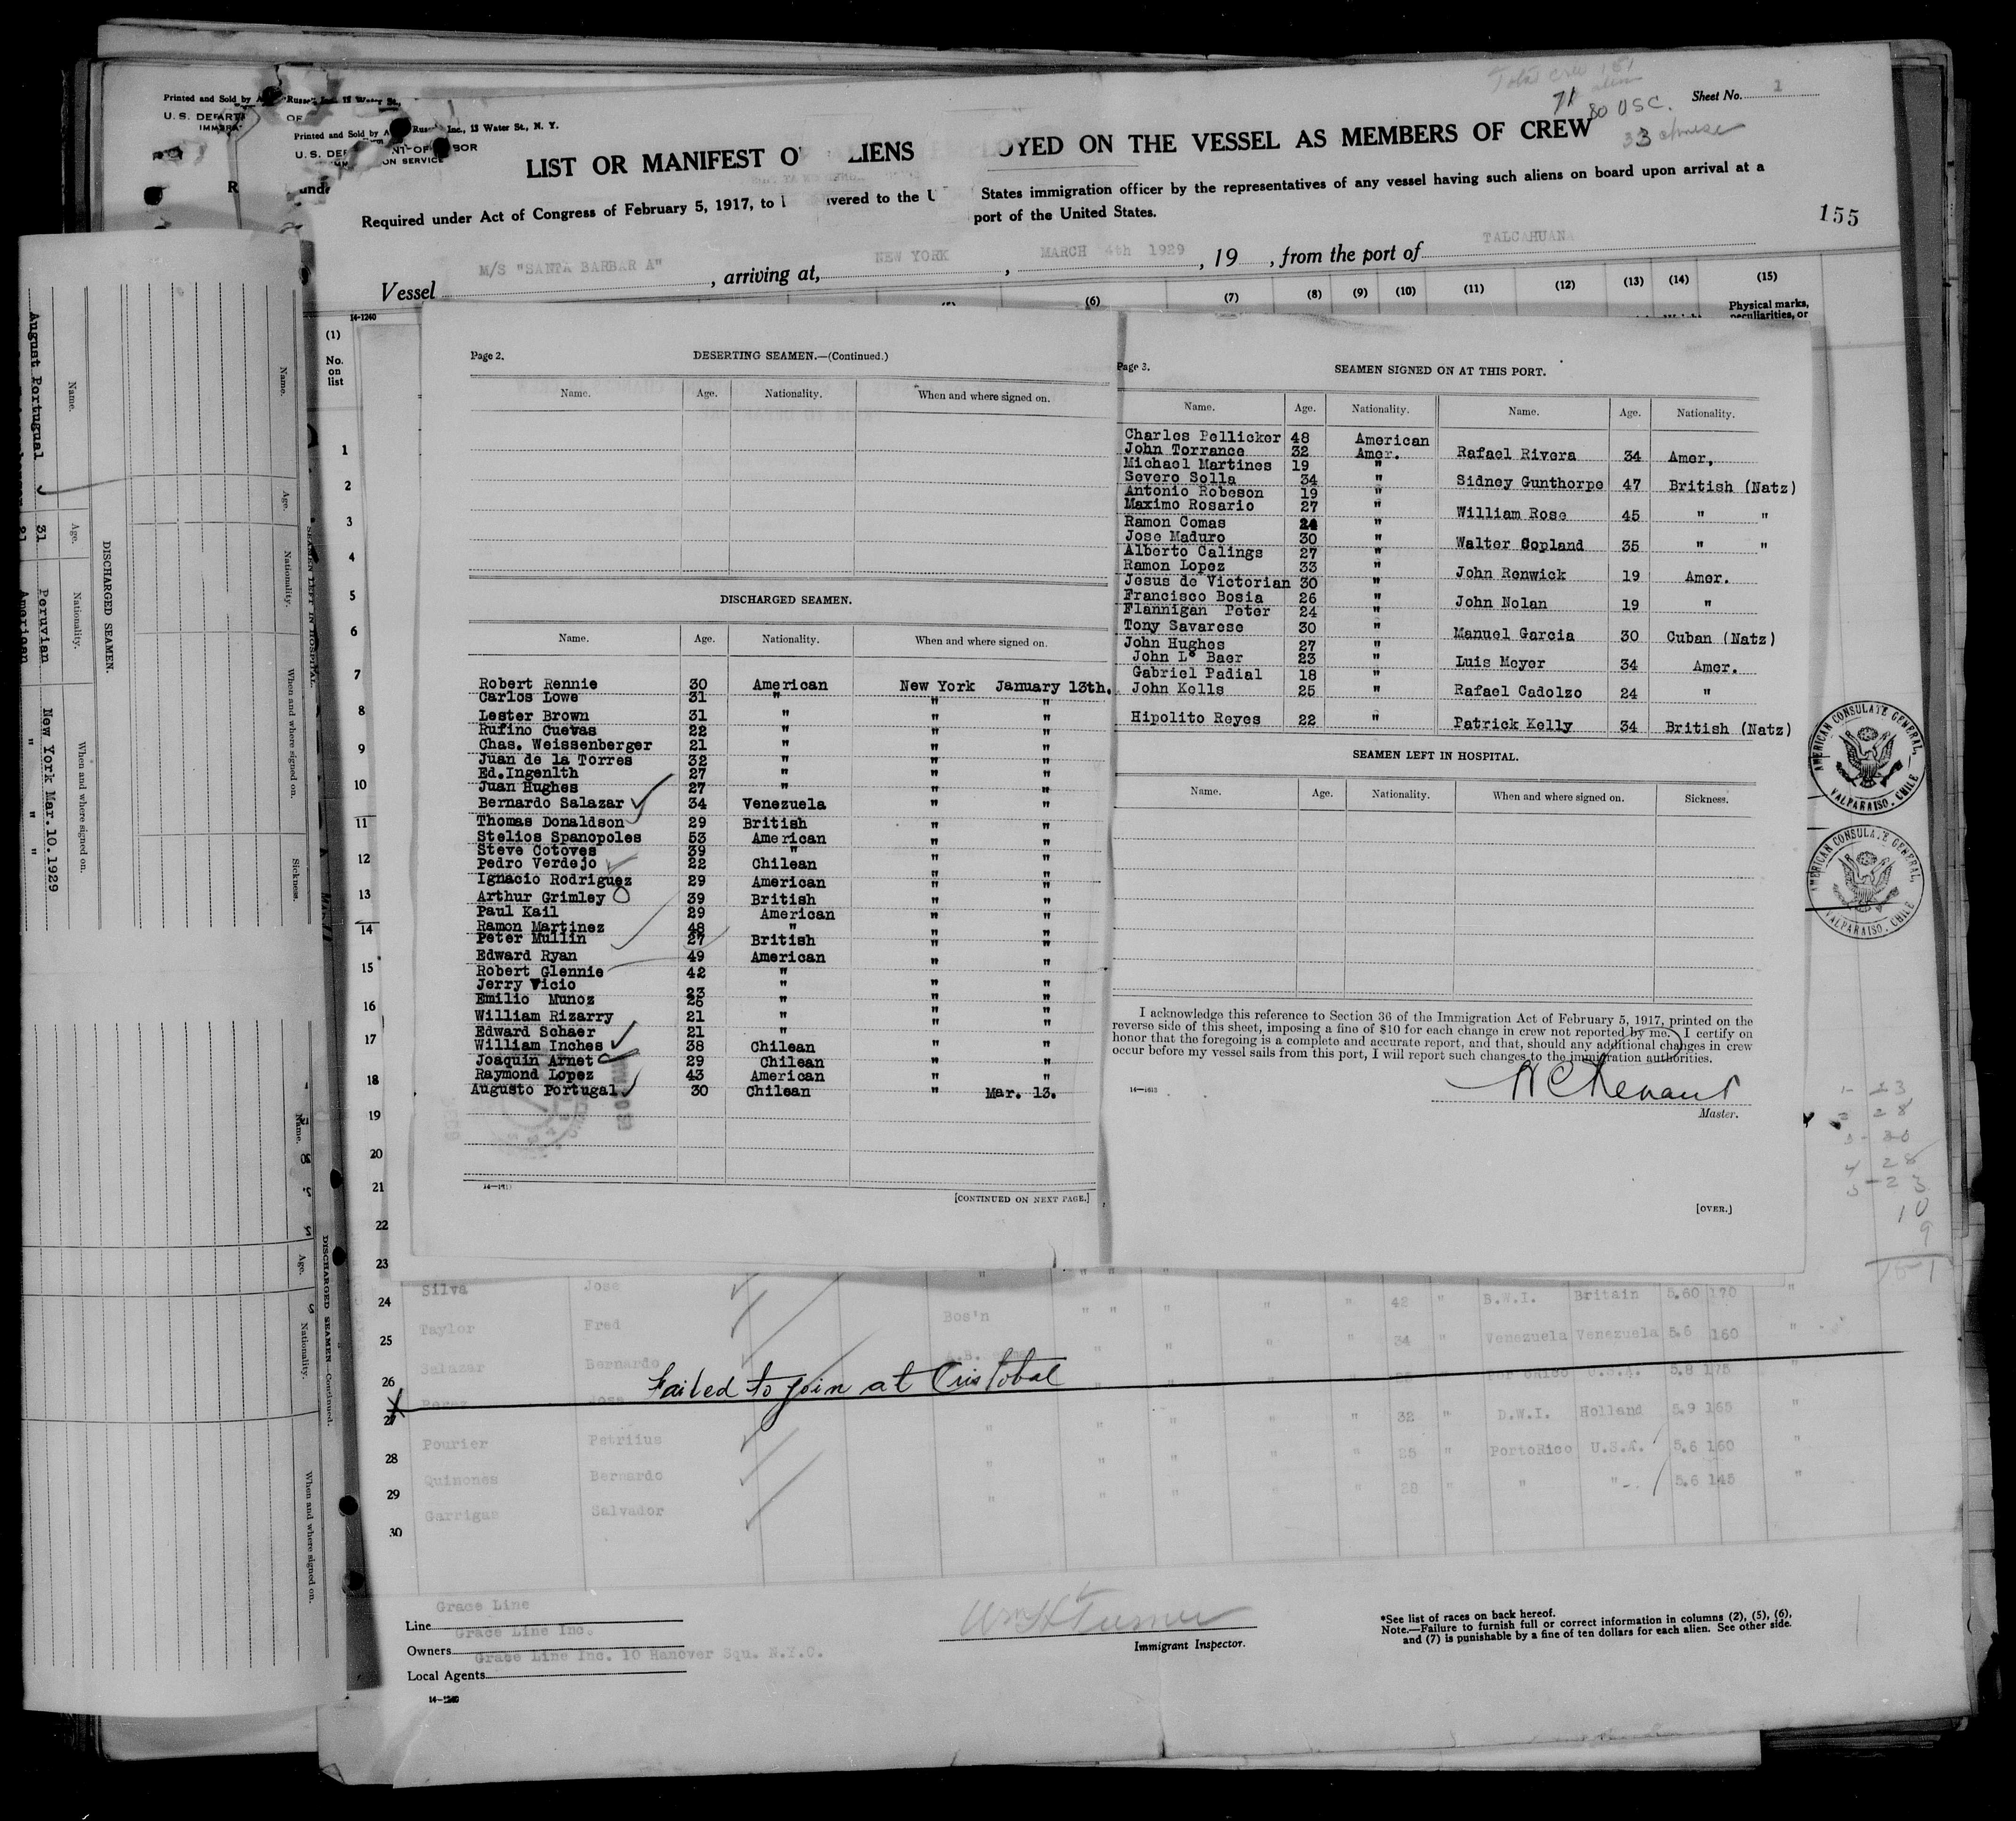 Total crew 151
71 alien
80 USC.
33 chinese
Sheet No. 1
Printed and Sold by
Russel, Inc. 13 Water St.,
U. S. DEPART OF
Printed and Sold by A Russel Inc., 13 Water St., N. Y.
LIST OR MANIFEST O LIENS OYED ON THE VESSEL AS MEMBERS OF CREW
Required under Act of Congress of February 5, 1917, to vered to the U States immigration officer by the representatives of any vessel having such aliens on board upon arrival at a
port of the United States.
155
Vessel M/S "SANTA BARBAR A", arriving at, NEW YORK, MARCH 4th 1929, 19 , from the port of TALCAHUANA
(6) (7) (8) (9) (10) (11) (12) (13) (14) (15)
Physical marks,
peculiarities, or
14-1240
(1)
No.
on
list
1
2
3
4
5
6
7
8
9
10
11
12
13
14
15
16
17
18
19
20
21
22
23
Page 2.
DESERTING SEAMEN.—(Continued.)
Name. Age. Nationality. When and where signed on.
DISCHARGED SEAMEN.
Name. Age. Nationality. When and where signed on.
Robert Rennie 30 American New York January 13th.
Carlos Lowe 31 " " "
Lester Brown 31 " " "
Rufino Cuevas 22 " " "
Chas. Weissenberger 21 " " "
Juan de la Torres 32 " " "
Ed.Ingenlth 27 " " "
Juan Hughes 27 " " "
Bernardo Salazar 34 Venezuela " "
Thomas Donaldson 29 British " "
Stelios Spanopoles 53 American " "
Steve Cotoves 39 " " "
Pedro Verdejo 22 Chilean " "
Ignacio Rodriguez 29 American " "
Arthur Grimley 39 British " "
Paul Kail 29 American " "
Ramon Martinez 48 " " "
Peter Mullin 27 British " "
Edward Ryan 49 American " "
Robert Glennie 42 " " "
Jerry Vicio 23 " " "
Emilio Munoz 26 " " "
William Rizarry 21 " " "
Edward Schaer 21 " " "
William Inches 38 Chilean " "
Joaquin Arnet 29 Chilean " "
Raymond Lopez 43 American " "
Augusto Portugal 30 Chilean " Mar. 13.
[CONTINUED ON NEXT PAGE.]
Page 3.
SEAMEN SIGNED ON AT THIS PORT.
Name. Age. Nationality. Name. Age. Nationality.
Charles Pellicker 48 American
John Torrance 32 Amer.
Michael Martines 19 "
Severo Solla 34 "
Antonio Robeson 19 "
Maximo Rosario 27 "
Ramon Comas 24 "
Jose Maduro 30 "
Alberto Calings 27 "
Ramon Lopez 33 "
Jesus de Victorian 30 "
Francisco Bosia 26 "
Flannigan Peter 24 "
Tony Savarese 30 "
John Hughes 27 "
John Le Baer 23 "
Gabriel Padial 18 "
John Kells 25 "
Hipolito Reyes 22 "
Rafael Rivera 34 Amer,
Sidney Gunthorpe 47 British (Natz)
William Rose 45 " "
Walter Copland 35 " "
John Renwick 19 Amer.
John Nolan 19 "
Manuel Garcia 30 Cuban (Natz)
Luis Meyer 34 Amer.
Rafael Cadolzo 24 "
Patrick Kelly 34 British (Natz)
SEAMEN LEFT IN HOSPITAL.
Name. Age. Nationality. When and where signed on. Sickness.
I acknowledge this reference to Section 36 of the Immigration Act of February 5, 1917, printed on the
reverse side of this sheet, imposing a fine of $10 for each change in crew not reported by me. I certify on
honor that the foregoing is a complete and accurate report, and that, should any additional changes in crew
occur before my vessel sails from this port, I will report such changes to the immigration authorities.
14—1613
Master.
[OVER.]
AMERICAN CONSULATE GENERAL,
VALPARAISO, CHILE
AMERICAN CONSULATE GENERAL,
VALPARAISO, CHILE
1- 23
2 28
3- 30
4 28
5 - 23
10
9
151
24 Silva Jose
25 Taylor Fred Bos'n " " " " " 42 " B.W.I. Britain 5.60 170 "
26 Salazar Bernardo A.B. " " " 34 " Venezuela Venezuela 5.6 160 "
27 Perez Jose U.S.A. 5.8 175
Failed to join at Cristobal
28 Pourier Petriius " " " " " 32 " D.W.I. Holland 5.9 165 "
29 Quinones Bernardo " " " " " 25 " PortoRico U.S.A. 5.6 160 "
30 Garrigan Salvador " " " " " 28 " " " 5.6 145 "
Line Grace Line
Owners Grace Line Inc.
Local Agents Grace Line Inc. 10 Hanover Squ. N.Y.C.
14-1240
Wm H Turner
Immigrant Inspector.
*See list of races on back hereof.
Note.—Failure to furnish full or correct information in columns (2), (5), (6),
and (7) is punishable by a fine of ten dollars for each alien. See other side.
SEAMEN LEFT IN HOSPITAL.
Name. Age. Nationality. When and where signed on. Sickness.
DISCHARGED SEAMEN.
Name. Age. Nationality. When and where signed on.
August Portugual 31 Peruvian New York Mar.10.1929
21 American " " "
DISCHARGED SEAMEN—Continued.
Name. Age. Nationality. When and where signed on.